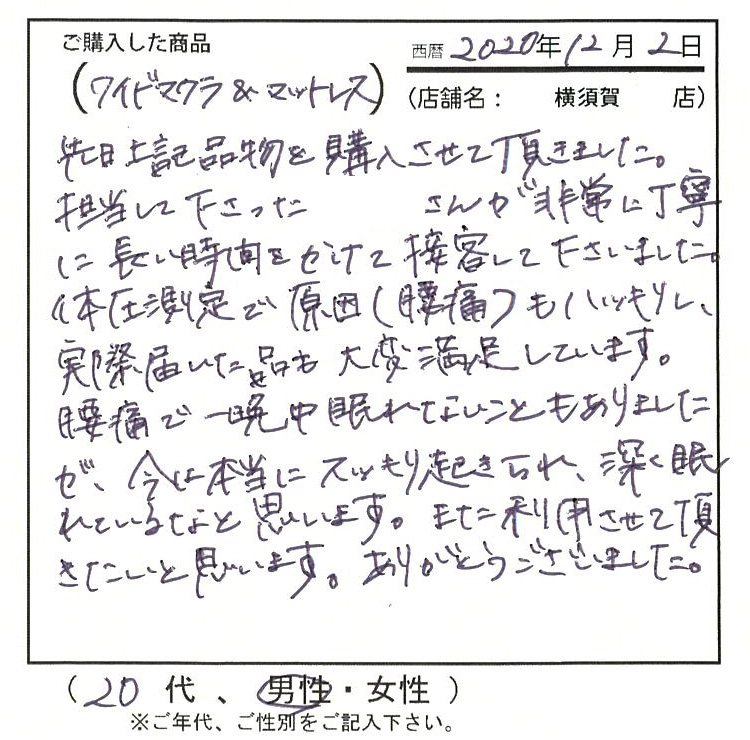 ご購入した商品
西暦 2020年12月2日
(ワイドマクラ&マットレス)
(店舗名： 横須賀 店)
先日上記品物を購入させて頂きました。
担当して下さった さんが非常に丁寧
に長い時間をかけて接客して下さいました。
体圧測定で原因(腰痛)もハッキリし、
実際届いた品も大変満足しています。
腰痛で一晩中眠れないこともありました
が、今は本当にスッキリ起きられ、深く眠
れているなと思います。また利用させて頂
きたいと思います。ありがとうございました。
(20代、男性・女性)
※ご年代、ご性別をご記入下さい。